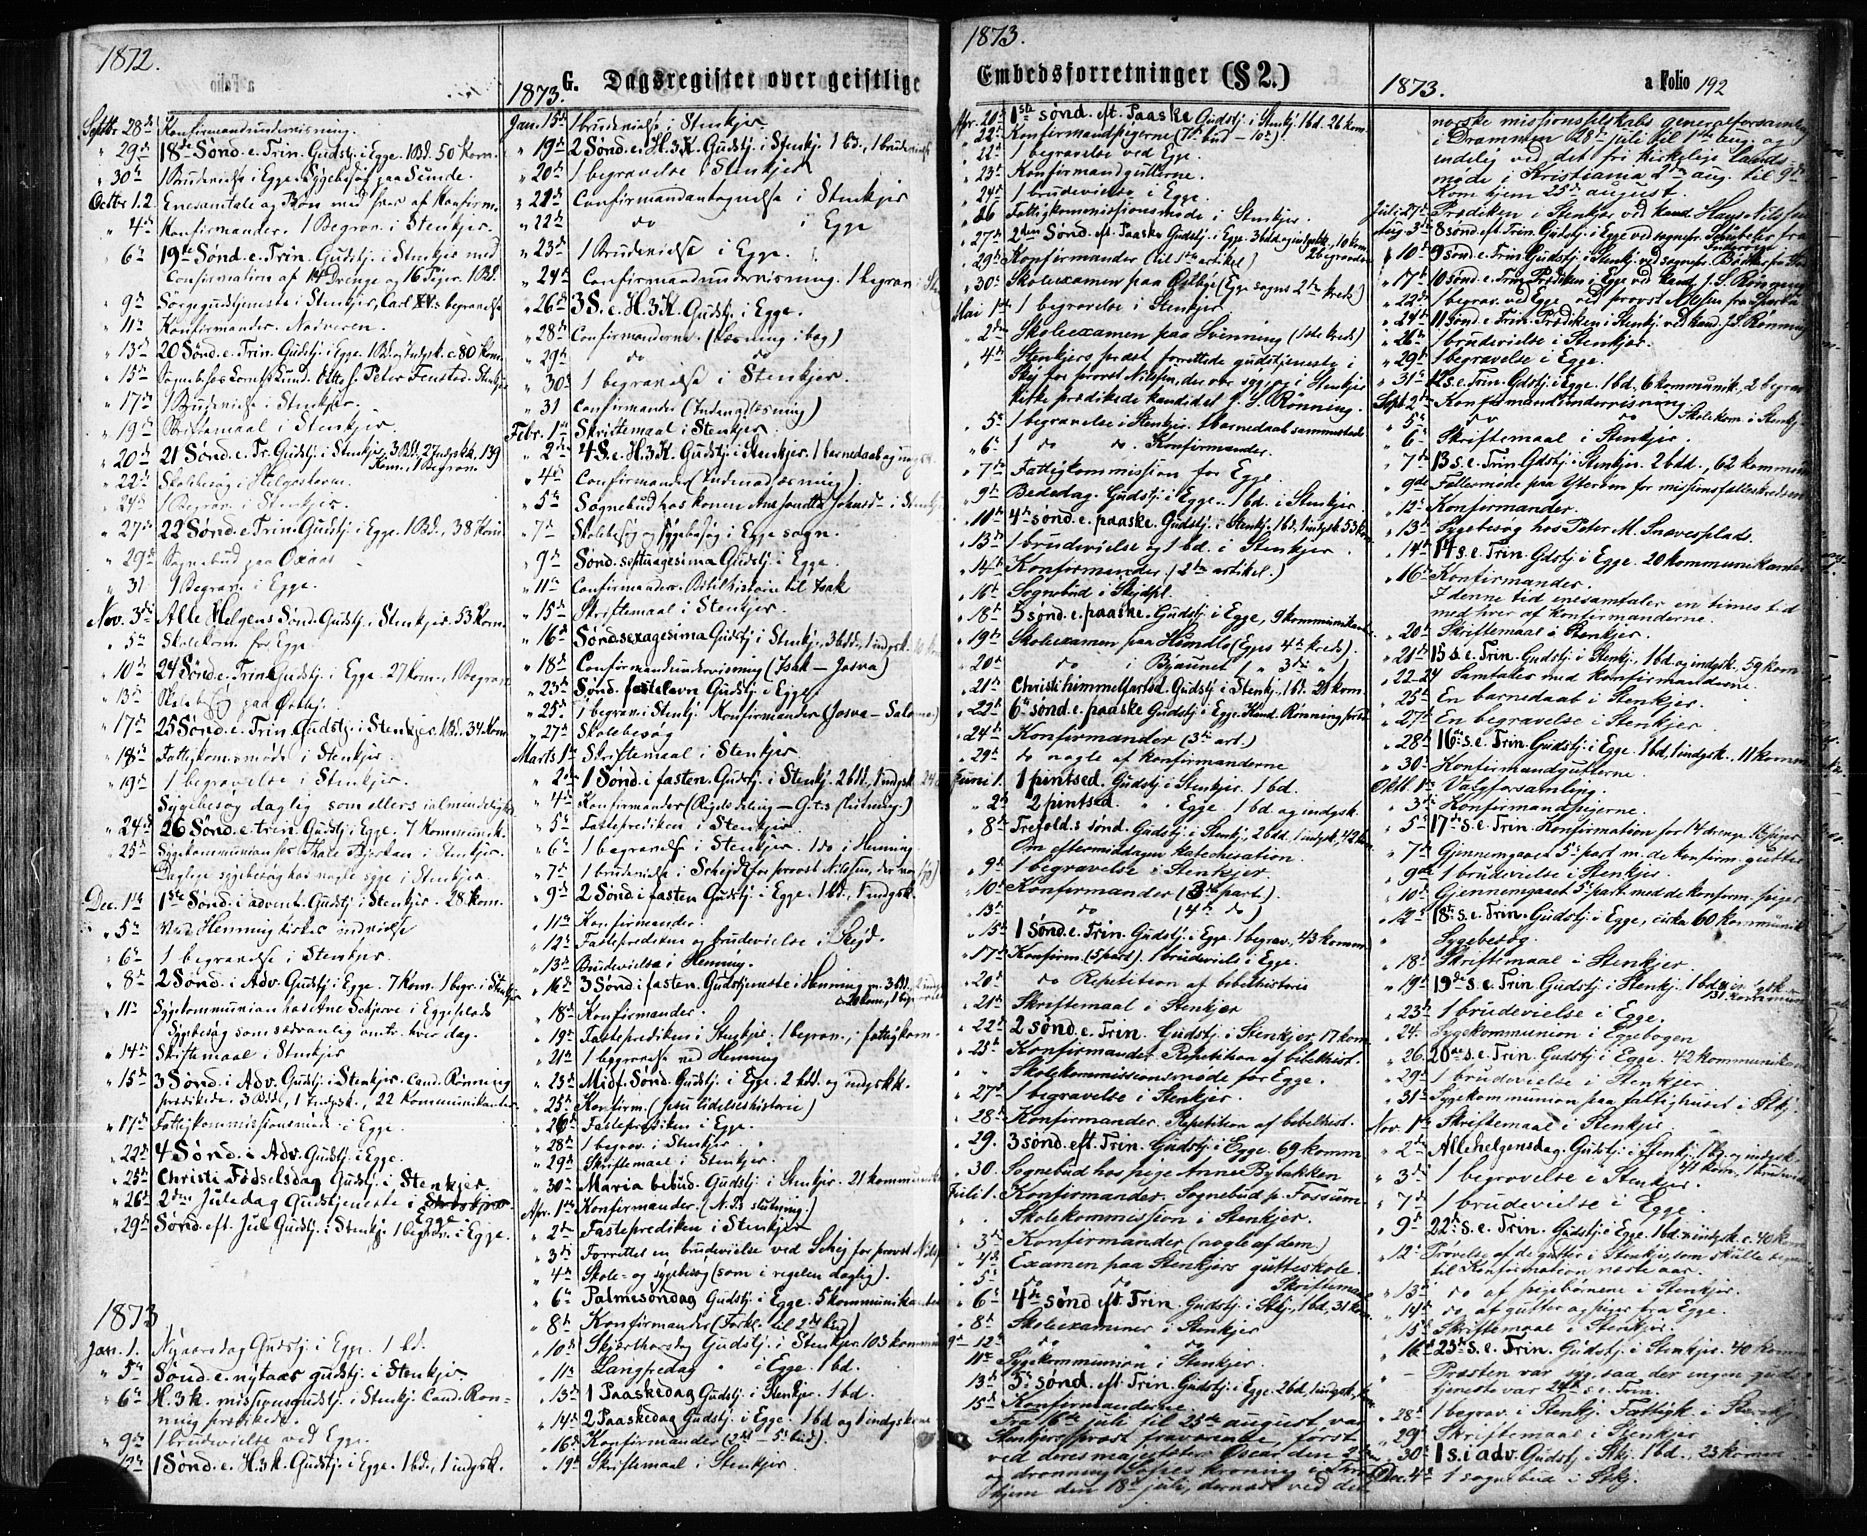 1872.
G. Dagsregister over geistlige
Septbr. 28de Konfirmandundervisning.
" 29de 18de Sønd. e. Trin. Gudstj. i Egge. 1 Bd. 50 Kom.
" 30te 1 Brudevielse i Egge. Sygebesøg paa Sunde.
Octbr. 1.2 Enesamtale og Bøn med hver af Konfirm.
" 4de Konfirmander. 1 Begrav. i Stenkjer.
" 6te 19de Sønd. e. Trin. Gudstj. i Stenkjer med
Confirmation af 14 Drenge og 16 Piger. 1 Bd.
" 9de Sørgegudstjeneste i Stenkjer, Carl XVs begravelse
" 11te Konfirmander. Nadveren.
" 13de 20 Sønd. e. Trin. Gudstj. i Egge. 1 Bd. og Indgsk. c. 80 Kom.
" 17de 1 Brudevielse i Stenkjer.
" 19de Skriftemaal i Stenkjer.
" 20de 21 Sønd. e. Tr. Gudstj. i Stenkjer. 3 Bd. 2 Indgsk. 139
Kom., 1 Begrav.
" 22de Skolebesøg i Helgostuen.
" 24de 1 Begrav. i Stenkjer.
" 27de 22 Sønd. e. Trin. Gudstj. i Egge. 1 Bd., 38 Kom.
" 29de Sognebud paa
" 31 1 Begrav. i Egge.
Nov. 3die Alle Helgens Sønd. Gudstj. i Stenkjer. 53 Kom.
" 5te Skolekom. for Egge.
" 10de 24 Sønd. e. Trin. Gudstj. i Egge. 27 Kom., 1 Begrav.
" 13de Skolebesøg paa Østby.
" 17de 25 Sønd. e. Trin. Gudstj. i Stenkjer. 1 Bd. 34 Kom.
" 18de Fattigkom.møde i Stenkjer.
" 19de 1 begravelse i Stenkjer.
Sygebesøg daglig som ellers i almindelighed
" 24de 26 Sønd. e. trin. Gudstj. i Egge. 7 Kommunik.
" 25de Sygekommunion hos i Stenkjer.
Daglige sygebesøg hos nogle syge i Stenkjer.
Dec. 1ste 1ste Sønd. i advent. Gudstj. i Stenkjer. 28 kom.
" 5te Ved Hemning kirkes indvielse
" 6te 1 begravelse i Stenkjer.
" 8de 2 Sønd. i Adv. Gudstj. i Egge. 7 Kom. 1 begr. i Stenkjer
" 11te Sygekommunion hos Ane Schjerve i Eggeplads
Sygebesøg som sædvanlig omtr. hver dag.
" 14de Skriftemaal i Stenkjer
" 15de 3 Sønd. i Adv. Gudstj. i Stenkjer. Cand. Rønning
prædikede. 3 Bd., 1 Indgsk., 22 Kommunikanter
" 17de Fattigkommissionsmøde i Egge.
" 22de 4 Sønd. i Adv. Gudstj. i Egge.
" 25de Christi Fødselsdag Gudstj. i Stenkjer.
" 26de 2den Juledag Gudstjeneste i
" 29de Sønd. eft. Jul Gudstj. i Stenkj. 1 begrav. i Egge.
1873
Jan. 1. Nyaarsdag Gudstj. i Egge. 1 bd.
" 5te Sønd. e. nytaar gudstj. i Stenkjer
" 6te H. 3 k. missionsgudstj. i Stenkj. Cand. Røn-
ning prædikede.
" 9de 1 brudevielse ved Egge.
" 12te 1 Sønd. e. H. 3 k. Gudstj. i Egge. 1 bd., 1 indgsk.
1873.
Jan. 15de 1 brudevielse i Stenkjer.
" 19de 2 Sønd. e. H. 3. K. Gudstj. i Stenkj. 1 bd., 1 brudevielse
" 20de 1 begravelse i Stenkjer
" 21de Confirmandantagelse i Stenkjer
" 22de do i Egge
" 23de 1 Brudevielse i Egge.
" 24de Confirmandundervisning. 1 begrav. i
" 26de 3 S. e. H. 3. K. Gudstj. i Egge.
" 28de Confirmanderne (læsning i bog)
" 29de do do
" 30te 1 begravelse i Stenkjer.
" 31 Confirmander (Indenadlæsning)
Febr. 1ste Skriftemaal i Stenkjer.
" 2den 4 S. e. H. 3. K. Gudstj. i Stenkjer. 1 barnedaab og
" 4de Confirmander (Indenadlæsning).
" 5te Sognebud hos konen
" 7de Skolebesøg og sygebesøg i Egge sogn.
" 9de Sønd. septuagesima Gudstj. i Egge.
" 11te Confirmander. Bibelhistorie til Isak
" 15de Skriftemaal i Stenkjer.
" 16de Sønd. sexagesima Gudstj. i Stenkj., 3 bd., 1 indgsk.
" 18de Confirmandundervisning (Isak – Josva)
" 23de Sønd. fastelavn Gudstj. i Egge.
" 25de 1 begrav. i Stenkj. Konfirmander (Josva – Salomo)
" 27de Skolebesøg
Marts 1ste Skriftemaal i Stenkjer
" 2den 1 Sønd. i fasten. Gudstj. i Stenkj. 2 bd., 1 indgsk.
" 4de Konfirmander (Rigets deling – G.t.s slutning.)
" 5te Fasteprediken i Stenkjer.
" 6te 1 begravelse i Stenkjer. 1 do i Hemning
" 7de 1 brudevielse i Schejd (for provst Nilssen, der var syg)
" 9de 2 Sønd. i fasten. Gudstj. i Egge. 1 bd., 1 indgsk.
" 11te Konfirmander.
" 12te Fasteprediken og brudevielse i Skejd.
" 13de Brudevielse i Hemning.
" 16de 3 Sønd. i fasten. Gudstjeneste i Hemning
" 18de Konfirmander.
" 19de Fasteprediken i Stenkjer. 1 begrav., fattigkom.
" 21de 1 begravelse ved Hemning
" 23de Midf. Sønd. Gudstj. i Egge. 2 bd. og indgskk.
" 25de Konfirm. (Jesu lidelseshistorie)
" 26de Fasteprediken i Egge.
" 28de 1 begrav. i Stenkjer.
" 29de Skriftemaal i Stenkjer.
" 30te Maria bebud. Gudstj. i Stenkjer. 21 kommunik.
Apr. 1ste Konfirmander. (N.T.s slutning.)
" 2den Fasteprediken i Stenkjer
" 3die Forrettet en brudevielse ved Schej for provst Nilss.
" 4de Skole- og sygebesøg (som i regelen daglig).
" 6te Palmesøndag Gudstj. i Egge. 5 kommunikanter
" 8de Konfirmander (Forkl. til 2det bud)
" 10de Skjærthorsdag Gudstj. i Stenkjer. 103 kommun.
" 11te Langfredag " i Egge. 1 bd.
" 13de 1 Paaskedag Gudstj. i Stenkjer. 1 bd.
" 14de 2 Paaskedag Gudstj. i Egge. 1 bd og 1 indgskone
" 16de Konfirmander (2det – 5te bud).
" 19de Skriftemaal i Stenkjer.
1873.
Embedsforretninger (§ 2.)
Apr. 20de 1ste sønd. eft. Paaske Gudstj. i Stenkj. 1 bd. 26 kom.
" 22de Konfirmandpigerne (7de bud – 10de)
" 22de 1 begravelse ved Egge.
" 23de Konfirmandgutterne.
" 24de 1 brudevielse i Egge.
" 26 Fattigkommissionsmøde i Stenkjer.
" 27de 2den Sønd. eft. Paaske Gudstj. i Egge. 3 bd. og indgskk., 10 kom.
2 begravelser
" 29de Konfirmander (til 1ste artikel)
" 30te Skoleexamen paa Østbye (Egge sogns 2den kreds)
Mai 1ste 1 begravelse i Stenkjer.
" 2den Skoleexamen paa Svenning (1ste kreds)
" 4de Stenkjers præst forrettede gudstjeneste i
Skej for provst Nilssen, der var syg, og i Stenkjer
kirke prædikede kandidat J. S. Rønning.
" 5te 1 begravelse i Stenkjer. 1 barnedaab sammesteds
" 6te 1 do do. Konfirmander.
" 7de Fattigkommission for Egge.
" 9de Bededag. Gudstj. i Egge. 1 bd. i Stenkjer.
" 11te 4de sønd. e. paaske. Gudstj. i Stenkj. 1 bd., 1 indgsk. 53 kom.
" 13de 1 brudevielse og 1 bd. i Stenkjer.
" 14de Konfirmander. (2den artikel.)
" 16de Sognebud i
" 18de 5 sønd. e. paaske. Gudstj. i Egge, 9 kommunikanter
" 19de Skoleexamen paa Humlo (Egges 4de kreds).
" 20de do i Byaunet ( " 3die " )
" 21de Christi himmelfartsd. Gudstj. i Stenkj., 1 bd. 21 kom.
" 22de 6te sønd. e. paaske Gudstj. i Egge. Kand. Rønning
" 24de Konfirmander (3die art.)
" 29de do nogle af konfirmanderne
Juni 1. 1 pintsed. Gudstj. i Stenkjer. 1 bd.
" 2den 2 pintsed. " " Egge. 1 bd og indgsk.
" 8de Trefold.s sønd. Gudstj. i Stenkj. 2 bd., 1 indgsk. 42 kom.
Om eftermiddagen katechesation.
" 9de 1 begravelse i Stenkjer.
" 10de Konfirmander (3die part).
" 13de do (4de do)
" 15de 1 sønd. e. Trin. Gudstj. i Egge. 1 begrav. 43 komm.
" 17de Konfirm. (5 part). 1 brudeviels. i Egge.
" 20de do Repetition af bibelhistorie
" 21de Skriftemaal i Stenkjer
" 22de 2 sønd. e. Trin. Gudstj. i Stenkjer, 17 kom.
" 25de Konfirmander. Repetition af bibelhist.
" " Skolekommissionsmøde for Egge.
" 27de 1 begravelse i Stenkjer.
" 28de Konfirmander. Repetition af bibelhist.
" 29. 3 sønd. eft. Trin. Gudstj. i Egge. 69 komm.
" 30. Sognebud hos pige Anne Bybakken
Juli 1. Konfirmander. Sognebud p. Fossum.
" Skolekommission i Stenkjer.
" 3die Konfirmander (nogle af dem)
" 4de Examen paa Stenkjers gutteskole.
" 5te do do Skriftemaal
" 6te 4de sønd. eft. Trin. Gudstj. i Stkj., 1 bd, 31 kom.
" 8de Skoleexaminer i Stenkjer
9de 12te do do
" 11te Sygekommunion i Stenkjer.
" 13de 5te sønd. eft. Trin. Gudstj. i Egge. 2 bd, 1 indgsk.
" 15de Konfirmanderne.
Fra 16de juli til 25de august var
Stenkjers præst fraværende, først
ved deres majestæter Oscar den 2dens
og dronning Sofies kroning i Thrond-
hjem den 18de juli, dernæst ved det
1873.
a Folio 192
norske missionsselskabs generalforsamling
i Drammen 28de juli til 1ste aug. og
endelig ved det fri kirkelige lands-
møde i Kristiania 2den aug. til 9de
Kom hjem 25de august.
Juli 27de Prædiken i Stenkjer ved kand. Hans Nilssen
Aug. 3die 8 sønd. eft. Trin. Gudstj. i Egge ved sognepr. Schübeler fra
Inderøen
" 10de 9 sønd. e. Trin. Gudstj. i Stenkj. ved sognepr.
" 17de 10 sønd. e. Trin. Prædiken i Egge ved kand. J. S. Rønning
" 22de 1 begrav. ved Egge ved provst Nilssen fra Sparbu
" 24de 11 sønd. e. Trin. Prædiken i Stenkj. ved kand. J. S. Rønning
" 26de 1 brudevielse i Stenkjer.
" 29de 1 begravelse i Egge.
" 31te 12 s. e. Trin. Gdstj. i Egge. 1 bd, 6 kommunik., 2 begrav.
Sept. 2den Konfirmandundervisning.
" 5te do do Skolekom. i Stenkj
" 6te Skriftemaal i Stenkjer.
" 7de 13 s. e. Trin. Gdstj. i Stenkjer. 2 bd., 62 kommun.
" 9de Fællesmøde paa Ytterøen for missionsfælleskredsen
" 12te Konfirmander.
" 13de Sygebesøg hos Peter M. Snavesplads.
" 14de 14 s. e. Trin. Gdstj. i Egge. 20 kommunikanter
" 16de Konfirmander.
I denne tid enesamtaler en times tid
med hver af konfirmanderne.
" 20de Skriftemaal i Stenkjer.
" 21de 15 s. e. Trin. Gudstj. i Stenkj., 1 bd. og indgsk. 59 kom
" 22-24 Samtaler med konfirmanderne.
" 25de En barnedaab i Stenkjer.
" 27de En begravelse i Stenkjer
" 28de 16de s. e. Trin. Gudstj. i Egge. 1 bd, 1 indgsk., 11 komm
" 30te Konfirmandgutterne.
Oktb. 1ste Valgforsamling.
" 3die Konfirmandpigerne.
" 5te 17de s. e. Trin. Konfirmation for 14 drenge, 16 piger
" 7de Gjennemgaaet 5te part m. de konfirm. gutter
" 9de 1 brudevielse i Stenkjer.
" 10de Gjennemgaaet 5te part med de konfirm. piger
" 12te 18de s. e. Trin. Gudstj. i Egge, cirka 60 kommunik
" Sygebesøg.
" 18de Skriftemaal i Stenkjer.
" 19de 19de s. e. Trin. Gudstj. i Stenkj. 1 bd. og indgsk.
131 kommun
" 23de 1 brudevielse i Egge.
" 24. Sygekommunion i Eggebogen
" 26. 20de s. e. Trin. Gudstj. i Egge. 42 kommunikan
" 29de 1 brudevielse i Stenkjer.
" 31te Sygekommunion paa fattighuset i Stkj.
Nov. 1ste Skriftemaal i Stenkjer.
" 2den Allehelgensdag. Gudstj. i Stenkj. 1 bg. og indgsk.
41 kom., 1 brudevi
" 3die 1 begravelse i Stenkjer.
" 7de 1 brudevielse i Egge.
" 9de 22de s. e. Trin. Gudstj. i Egge. 1 bd. n indgsk. c. 40 kom
" 12te Prøvelse af de gutter i Stenkjer, som skulle begynde
til Konfirmation næste aar.
" 13de do af pigebørnene i Stenkjer.
" 14de do af gutter og piger fra Egge.
" 15de Skriftemaal i Stenkjer.
" 16de 23de s. e. Trin. Gudstj. i Stenkjer. 40 komm
" Præsten var syg, saa der ingen guds-
tjeneste var 24de s. e. Trin.
" 28de 1 begrav. i Stenkj. Fattigk. i Stenkj
" 29de Skriftemaal i Stenkjer
" 30te 1 s. i adv. Gudstj. i Stkj. 1 bd., 23 komm
Dec. 4de 1 sognebud i Stkj.